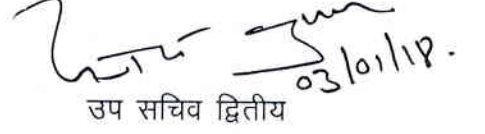 03/01/18.
उप सचिव द्वितीय